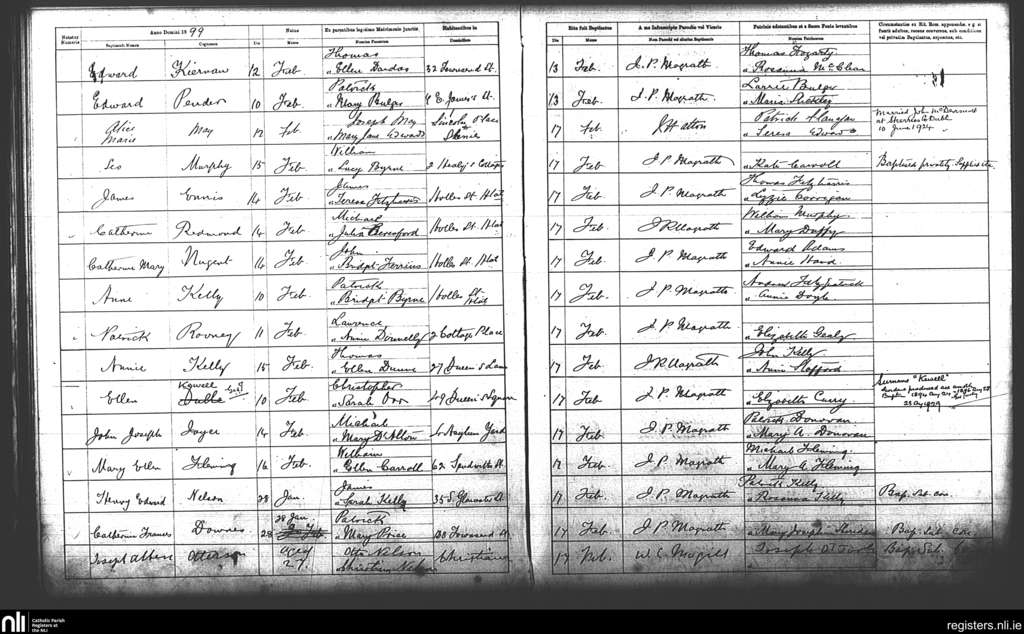 Notatur Numerus
Anno Domini 1899
Baptizati Nomen
Cognomen
Natus
Die
Mense
Ex parentibus legitimo Matrimonio Junctis
Nomina Parentum
Habitantibus in
Domicilium
Rite fuit Baptizatus
Die
Mense
A me Infrascripto Parocho vel Vicario
Nom Parochi vel alterius Baptizantis
Patrinis adstantibus et a Sacro Fonte levantibus
Nomina Patrinorum
Edward Kiernan 12 Feb Thomas
" Ellen Dardas 32 Townsend St. 13 Feb. J. P. Magrath Thomas Fogarty
" Rosanna McClean
Edward Pender 10 Feb Patrick
" Mary Bulger 4 E. James's St. 13 Feb J. P. Magrath Larrie Bulger
" Maria
Alice Marie May 12 Feb. Joseph May
" Mary Jane Edwards Lincoln Place 17 Feb Patrick Flangan
" Teresa Edwards
Married John McDermott
10 June 1924
Leo Murphy 15 Feb William
" Lucy Byrne 2 Healy's Cottages 17 Feb J. P. Magrath
" Kate Carroll Baptized privately
James Ennis 14 Feb James
" Teresa Fitzharris Holles St. Hosp 17 Feb J. P. Magrath Thomas Fitzharris
" Lizzie Corrigan
Catherine Redmond 14 Feb Michael
" Julia Beresford Holles St. Hosp 17 Feb J P Magrath William Murphy
" Mary Duffy
Catherine Mary Nugent 14 Feb John
" Bridget Holles St. Hosp 17 Feb J. P. Magrath Edward Adams
" Annie Ward
Anne Kelly 10 Feb Patrick
" Bridget Byrne Holles St. Hosp 17 Feb. J. P. Magrath Andrew Fitzpatrick
" Annie Doyle
Patrick Rooney 11 Feb Lawrence
" Annie Donnelly 2 Cottage Place 17 Feb J. P. Magrath
" Elizabeth Gealy
Annie Kelly 15 Feb. Thomas
" Ellen Dunne 27 Queen's Lane 17 Feb J P Magrath John Kelly
" Annie Stafford
Ellen Kewell 10 Feb Christopher
" Sarah Orr 49 Queen's Square 17 Feb J. P. Magrath
" Elizabeth Curry
Surname "Kewell"
John Joseph Joyce 14 Feb Michael
" Mary D'Alton 4 Asylum Yard 17 Feb J. P. Magrath Patrick Donovan
" Mary A. Donovan
Mary Ellen Fleming 16 Feb. William
" Ellen Carroll 62 17 Feb J. P. Magrath Michael Fleming
" Mary A. Fleming
Henry Edward Nelson 28 Jan. James
" Sarah Kelly 35 S. Gloucester St 17 Feb. J. P. Magrath Patrick Kelly
" Rosanna Kelly Bap. sub. con.
Catherine Frances Downes 28 28 Jan Patrick
" Mary Price 138 Townsend St. 17 Feb J. P. Magrath
" Mary Josephine Bap. sub. con.
Joseph Otterson 27 Otto Nelson
" Christina Nelson 17 Feb. W. C. Magill Joseph
Bap. sub.
nli
Catholic Parish
Registers at
the NLI
registers.nli.ie